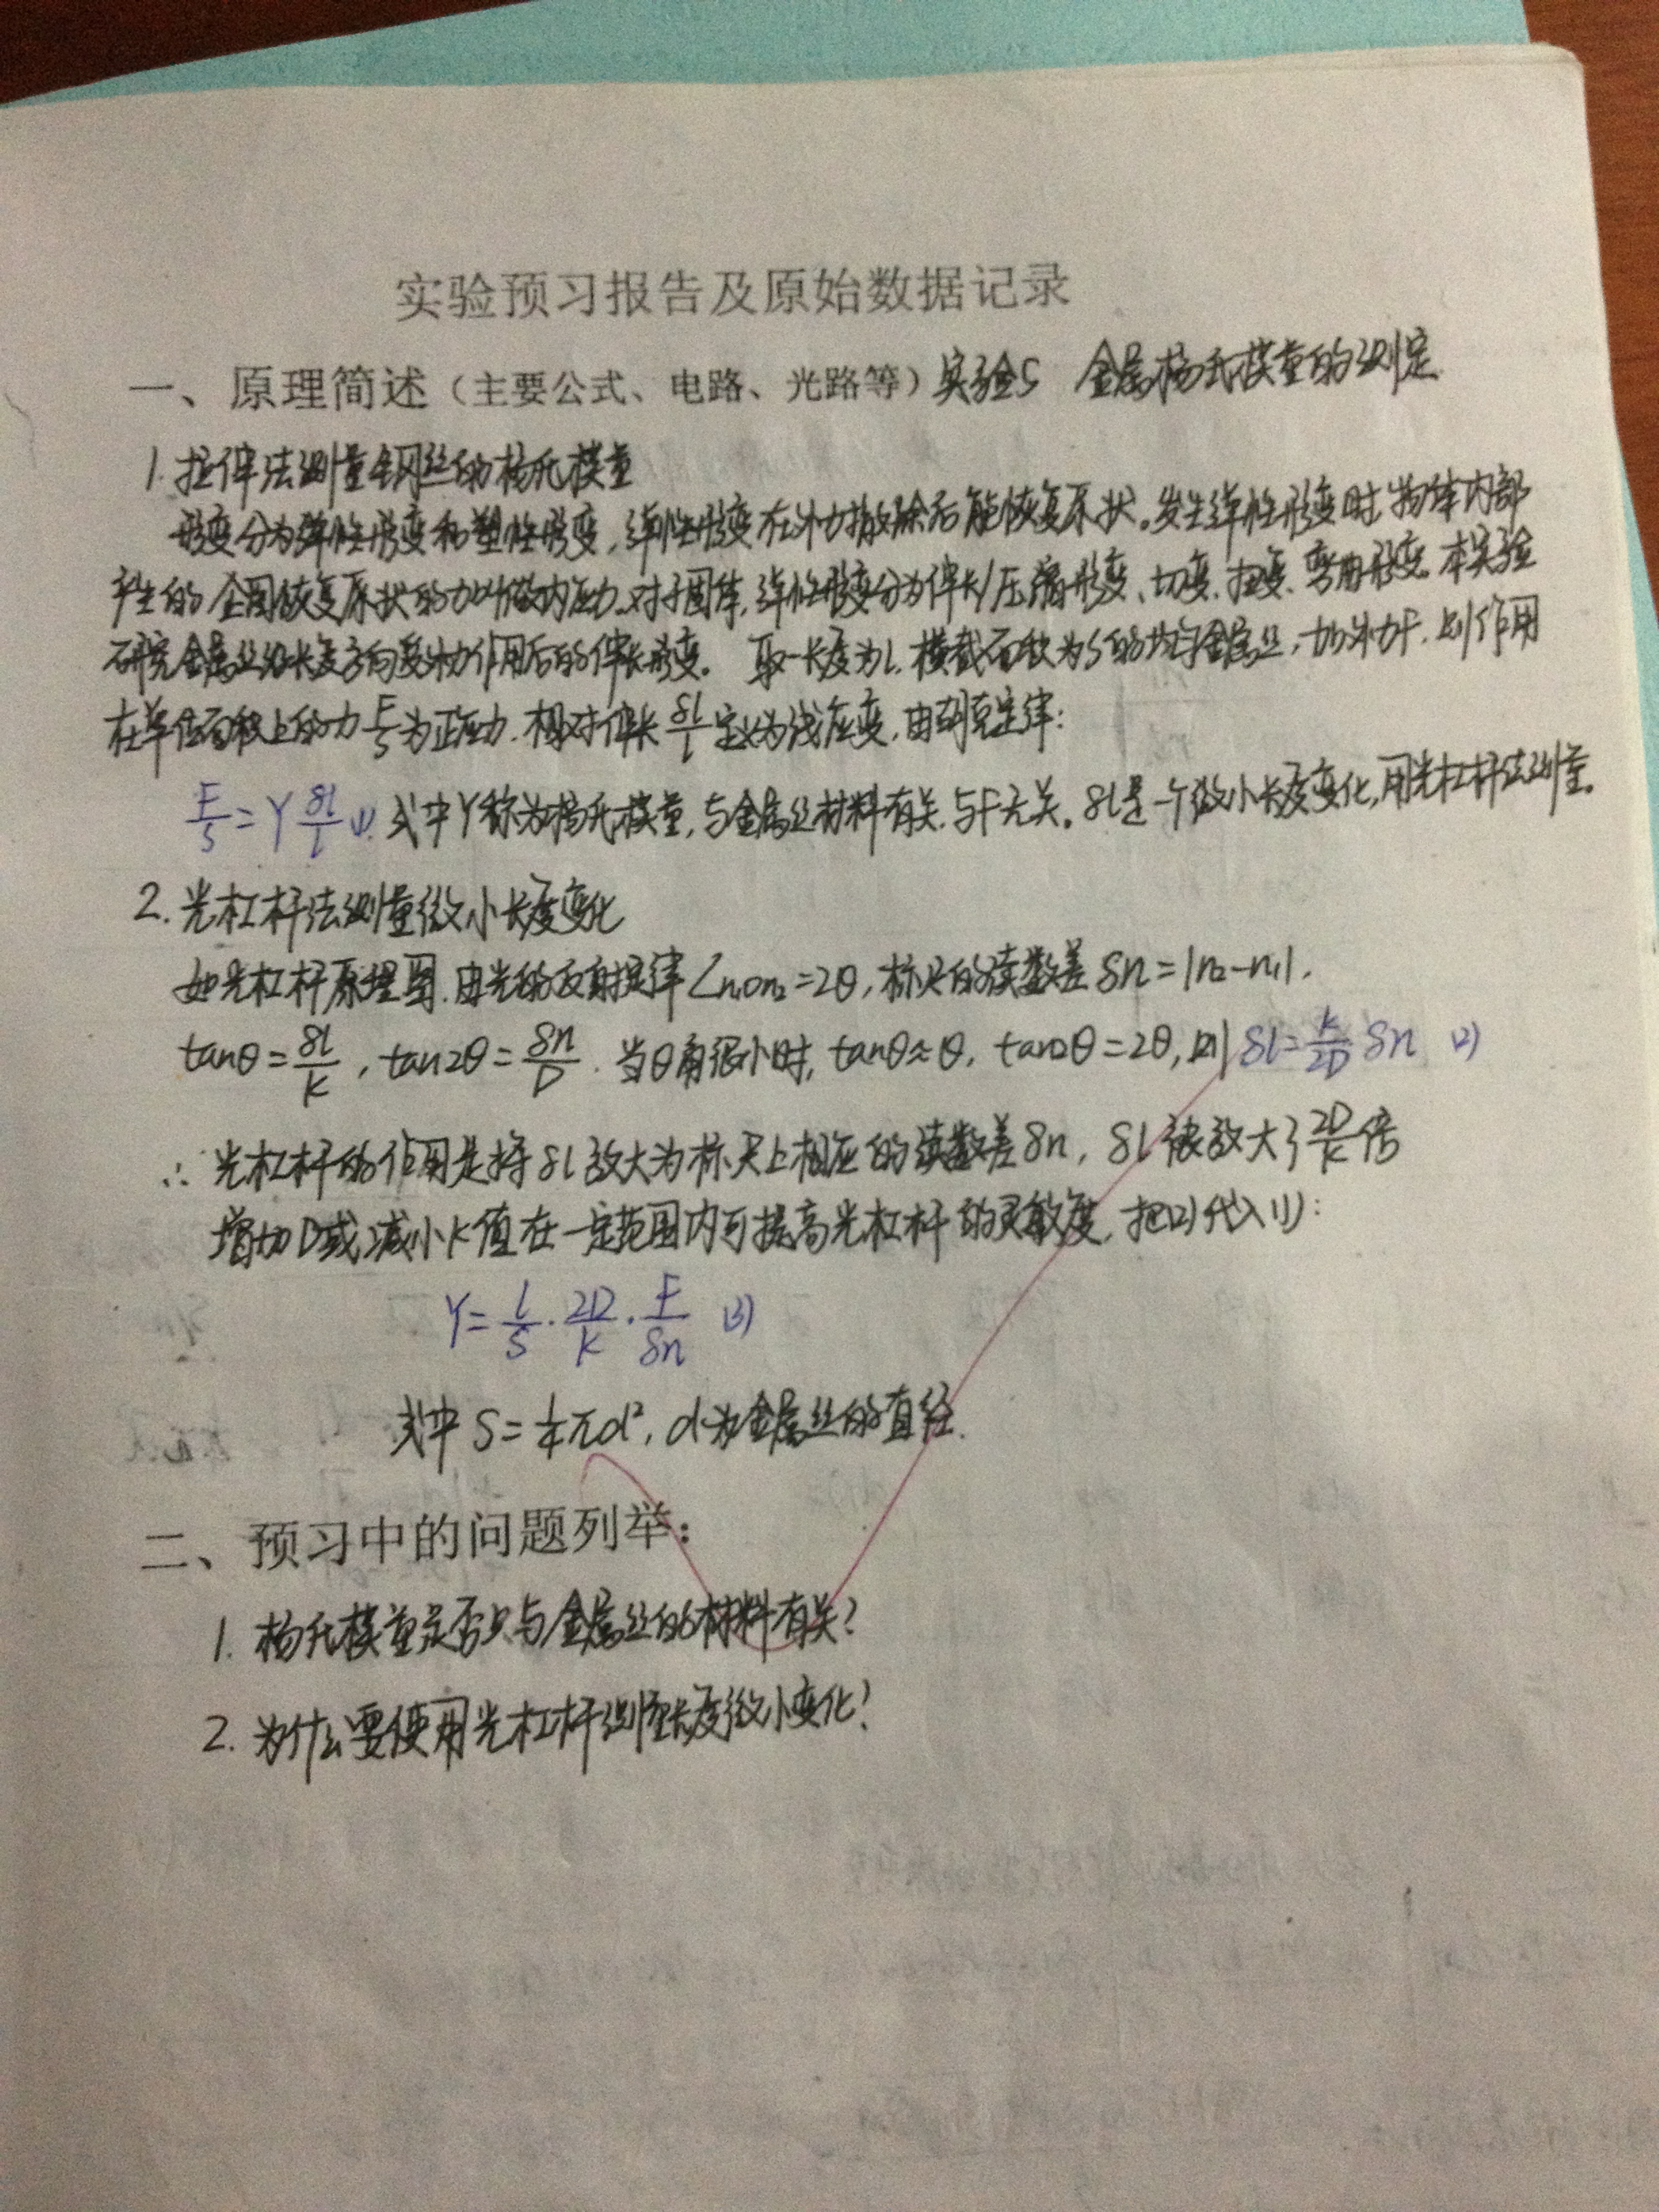 实验预习报告及原始数据记录
一、原理简述（主要公式、电路、光路等）实验5 金属杨氏模量的测定
1.拉伸法测量钢丝的杨氏模量
形变分为弹性形变和塑性形变，弹性形变在外力撤除后能恢复原状。发生弹性形变时物体内部
产生的企图恢复原状的力叫做内应力。对于固体，弹性形变分为伸长/压缩形变、切变、扭变、弯曲形变。本实验
研究金属丝沿长度方向受外力作用后的伸长形变。取一长度为L，横截面积为S的均匀金属丝，加外力F，则作用
在单位面积上的力F/S为正应力，相对伸长δL/L定义为线应变，由胡克定律：
F/S=Y δL/L (1) 式中Y称为杨氏模量，与金属丝材料有关，与F无关。δL是一个微小长度变化，用光杠杆法测量。
2.光杠杆法测量微小长度变化
如光杠杆原理图，由光的反射定律∠n₁On₂=2θ，标尺的读数差δn=|n₂-n₁|.
tanθ=δL/K，tan2θ=δn/D. 当θ角很小时，tanθ≈θ，tan2θ=2θ，则δL=K/2D δn (2)
∴光杠杆的作用是将δL放大为标尺上相应的读数差δn，δL被放大了2D/K倍
增加D或减小K值在一定范围内可提高光杠杆的灵敏度，把(2)代入(1)：
Y=L/S·2D/K·F/δn (3)
式中S=¼πd²，d为金属丝的直径.
二、预习中的问题列举：
1.杨氏模量是否只与金属丝的材料有关？
2.为什么要使用光杠杆测量长度微小变化？